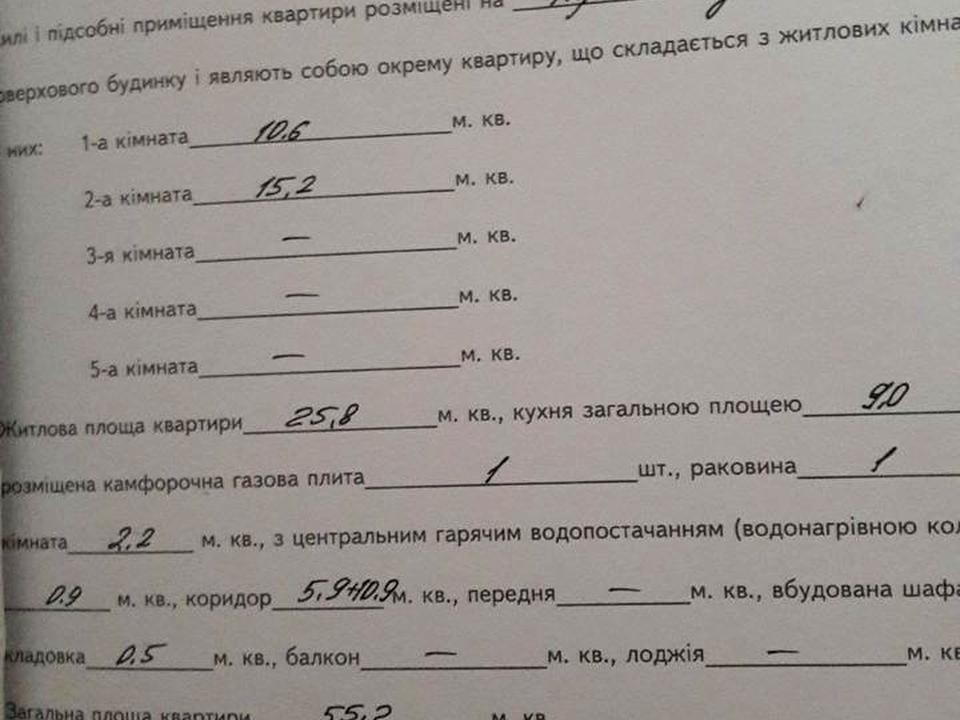 илі і підсобні приміщення квартири розміщені на
оверхового будинку і являють собою окрему квартиру, що складається з житлових кімна
них: 1-а кімната 10.6 м. кв.
2-а кімната 15,2 м. кв.
3-я кімната — м. кв.
4-а кімната — м. кв.
5-а кімната — м. кв.
Житлова площа квартири 25,8 м. кв., кухня загальною площею 9,0
розміщена камфорочна газова плита 1 шт., раковина 1
кімната 2,2 м. кв., з центральним гарячим водопостачанням (водонагрівною кол
0.9 м. кв., коридор 5,9+10.9 м. кв., передня — м. кв., вбудована шафа
кладовка 0.5 м. кв., балкон — м. кв., лоджія — м. кв
Загальна площа квартири 55,2 м. кв.